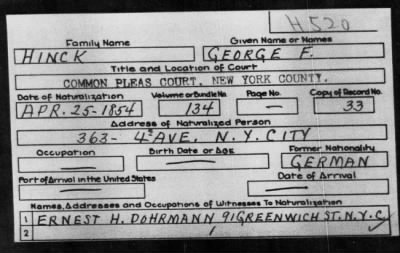 H520
Family Name Given Name or Names
HINCK GEORGE F.
Title and Location of Court
COMMON PLEAS COURT, NEW YORK COUNTY.
Date of Naturalization Volume or Bundle No. Page No. Copy of Record No.
APR. 25-1854 134 — 33
Address of Naturalized Person
363- 4ª AVE. N.Y. CITY
Occupation Birth Date or Age Former Nationality
— — GERMAN
Port of Arrival in the United States Date of Arrival
— —
Names, Addresses and Occupations of Witnesses To Naturalization
1 ERNEST H. DOHRMANN 91 GREENWICH ST. N.Y.C
2